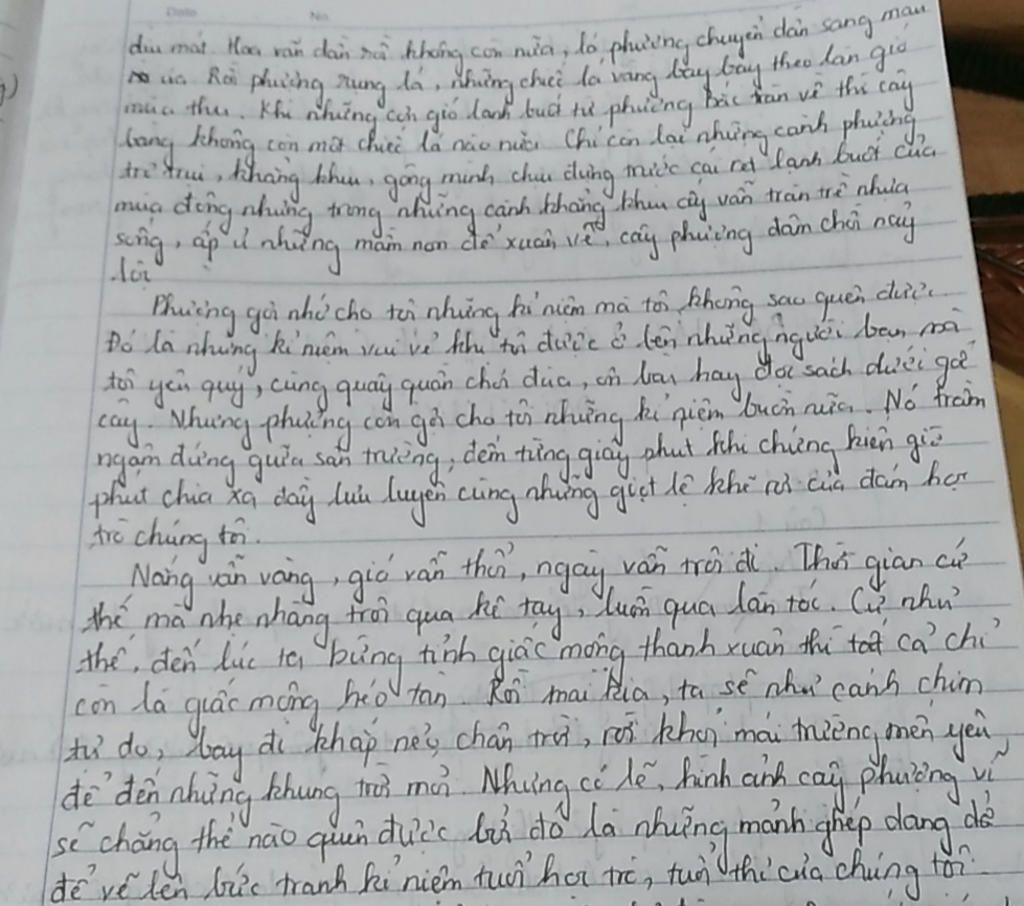 Date No
dịu mát. Hoa vẫn dần rồi không còn nữa, lá phượng chuyển dần sang màu
úa. Rồi phượng rụng lá, những chiếc lá vàng bay bay theo làn gió
mùa thu. Khi những cơn gió lạnh buốt từ phương bắc tràn về thì cây
bàng không còn một chiếc lá nào nữa. Chỉ còn lại những cành phượng
trơ trụi, khẳng khiu, gồng mình chịu đựng trước cái rét lạnh buốt của
mùa đông nhưng trong những cành khẳng khiu ấy vẫn tràn trề nhựa
sống, ấp ủ những mầm non để xuân về, cây phượng đâm chồi nảy
lộc
Phượng gợi nhớ cho tôi những kỉ niệm mà tôi không sao quên được.
Đó là những kỉ niệm vui vẻ khi tôi được ở bên những người bạn mà
tôi yêu quý, cùng quây quần chơi đùa, ôn bài hay đọc sách dưới gốc
cây. Nhưng phượng còn gợi cho tôi những kỉ niệm buồn nữa. Nó trầm
ngâm đứng giữa sân trường, đếm từng giây phút khi chứng kiến giờ
phút chia xa đầy lưu luyến cùng những giọt lệ khẽ rơi của đám học
trò chúng tôi.
Nắng vẫn vàng, gió vẫn thổi, ngày vẫn trôi đi. Thời gian cứ
thế mà nhẹ nhàng trôi qua kẽ tay, luồn qua làn tóc. Cứ như
thế, đến lúc ta bừng tỉnh giấc mộng thanh xuân thì tất cả chỉ
còn là giấc mộng héo tàn. Rồi mai kia, ta sẽ như cánh chim
tự do, bay đi khắp nẻo chân trời, rời khỏi mái trường mến yêu
để đến những khung trời mới. Nhưng có lẽ, hình ảnh cây phượng vĩ
sẽ chẳng thể nào quên được bởi đó là những mảnh ghép dang dở
để vẽ lên bức tranh kỉ niệm tuổi học trò, tuổi thơ của chúng tôi.